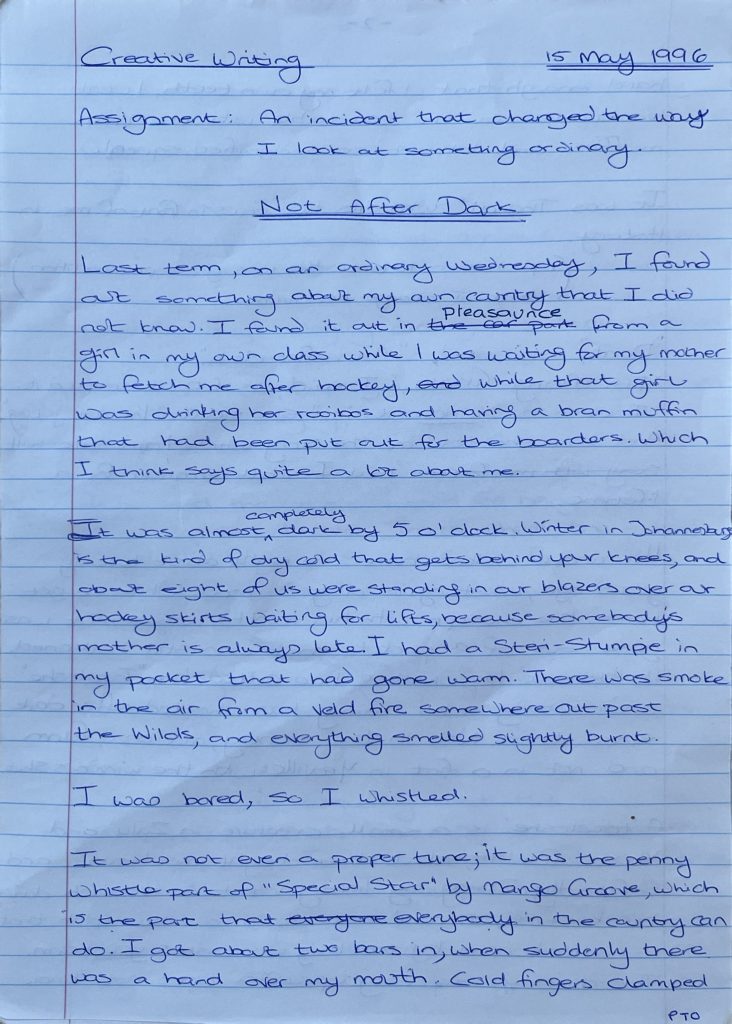 Creative Writing 15 May 1996
Assignment: An incident that changed the way
I look at something ordinary.
Not After Dark
Last term, on an ordinary Wednesday, I found
out something about my own country that I did
pleasaunce
not know. I found it out in the car park from a
girl in my own class while I was waiting for my mother
to fetch me after hockey, and while that girl
was drinking her rooibos and having a bran muffin
that had been put out for the boarders. Which
I think says quite a lot about me.
completely
It was almost ^ dark by 5 o'clock. Winter in Johannesburg
is the kind of dry cold that gets behind your knees, and
about eight of us were standing in our blazers over our
hockey skirts waiting for lifts, because somebody's
mother is always late. I had a Steri-Stumpie in
my pocket that had gone warm. There was smoke
in the air from a veld fire somewhere out past
the Wilds, and everything smelled slightly burnt.
I was bored, so I whistled.
It was not even a proper tune; it was the penny
whistle part of "Special Star" by Mango Groove, which
is the part that everyone everybody in the country can
do. I got about two bars in, when suddenly there
was a hand over my mouth. Cold fingers clamped
PTO